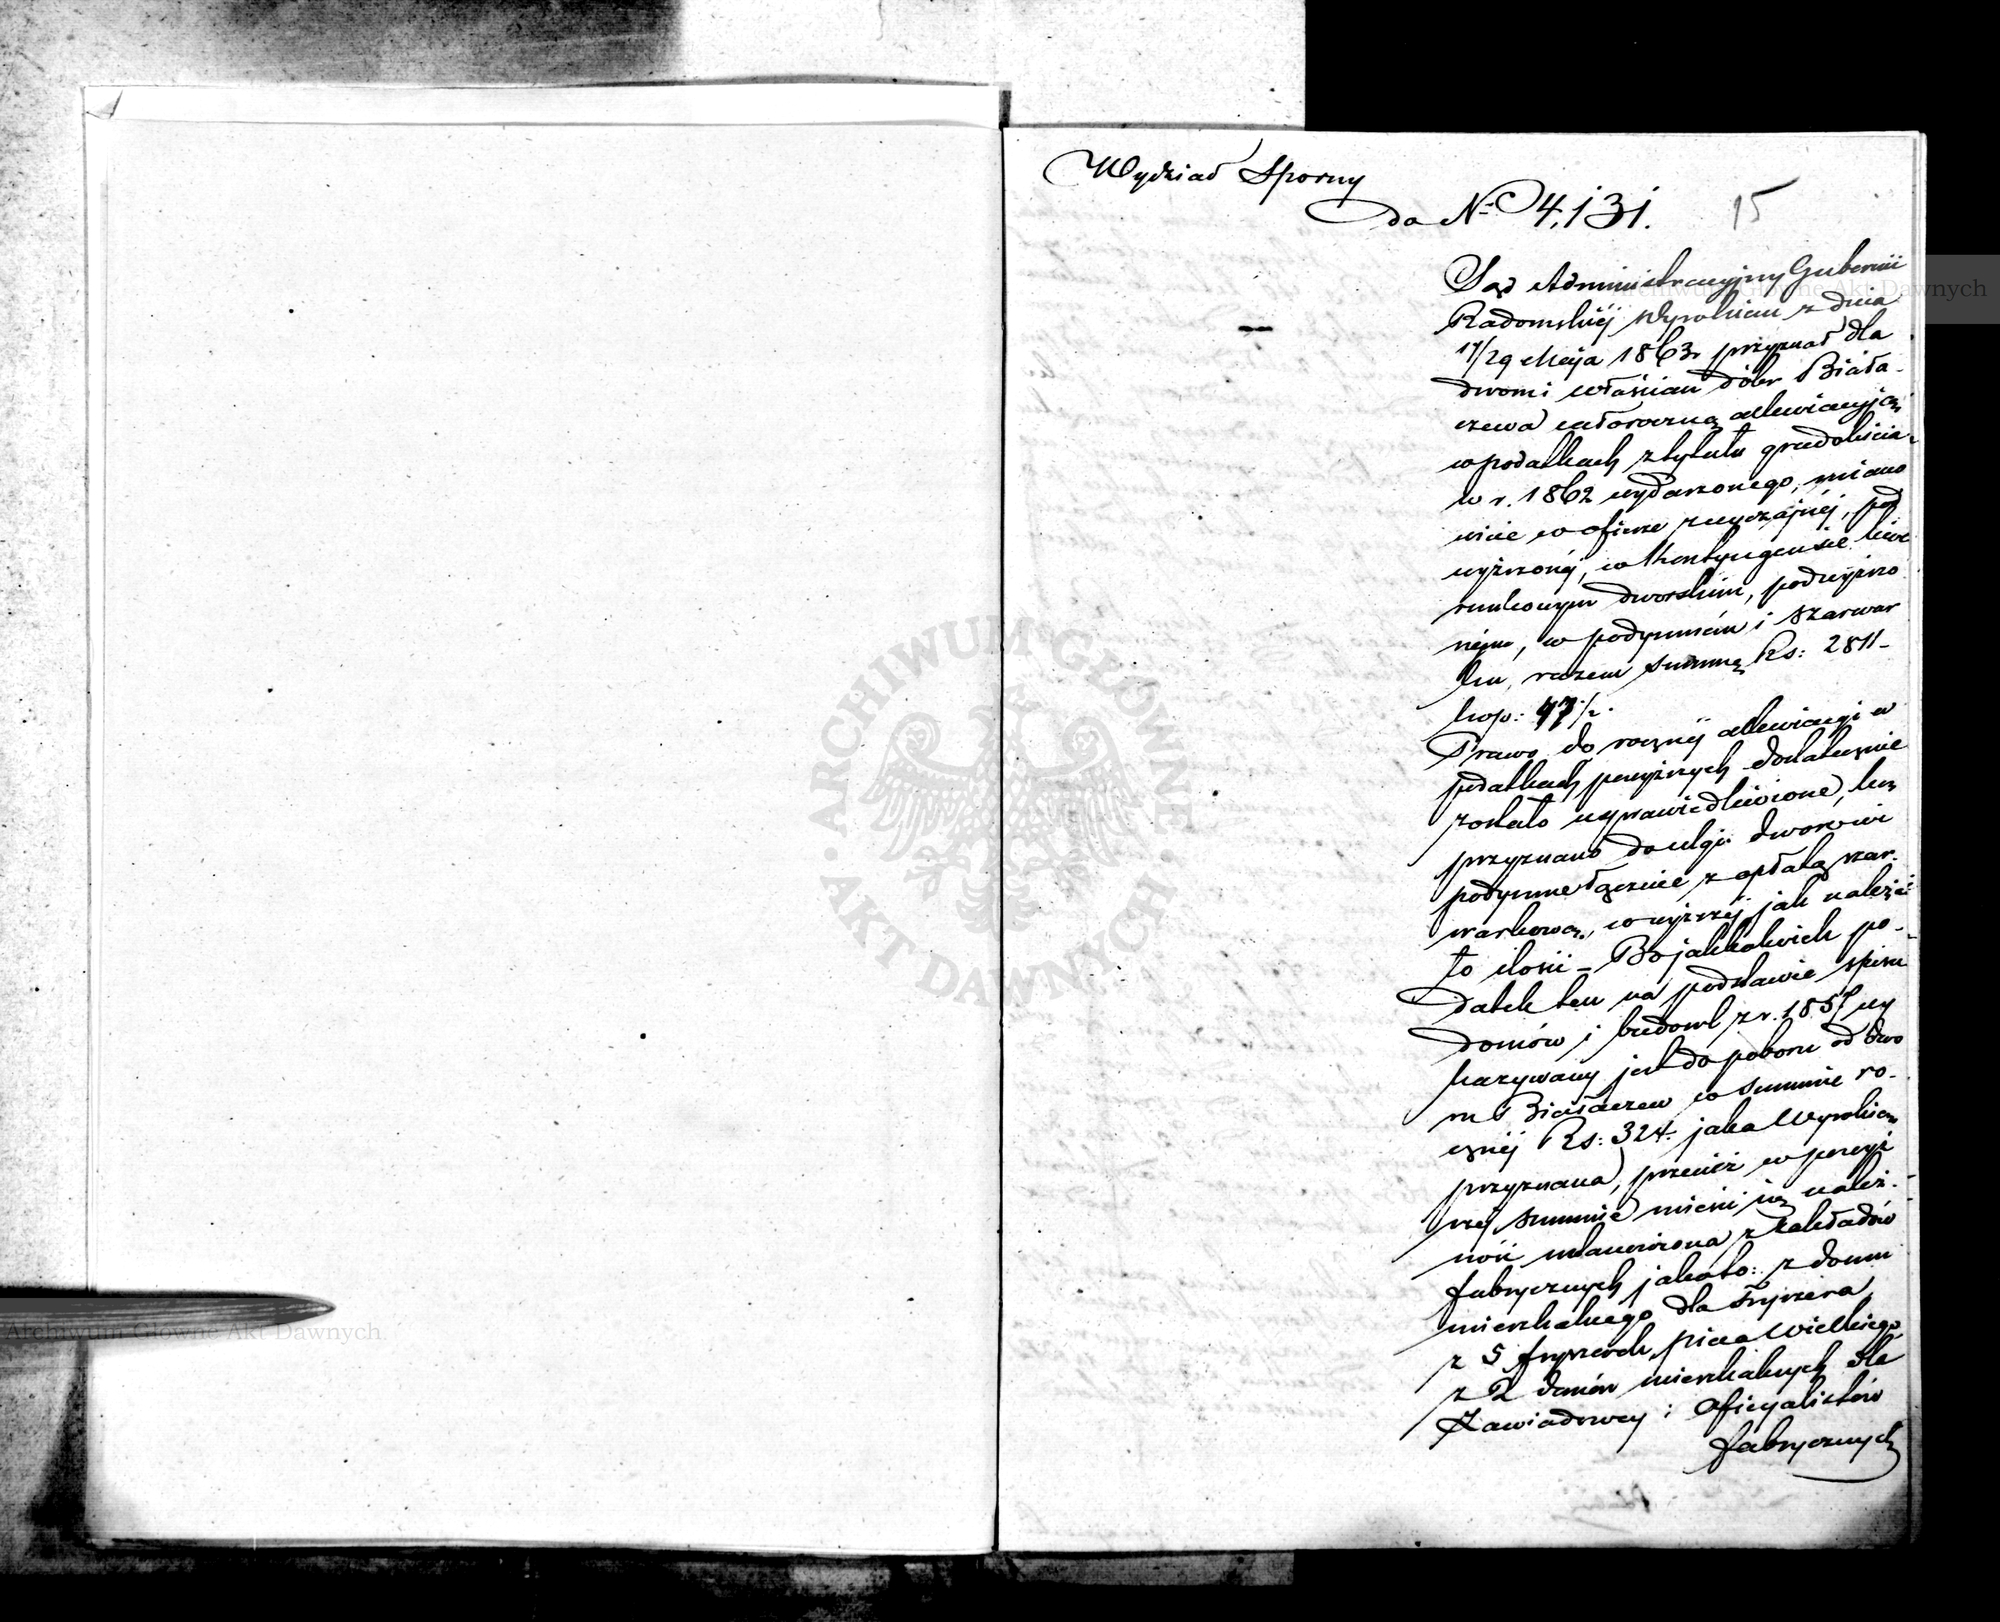 Wydział Sporny
do No 4,131.
15
Sąd Administracyjny Gubernii
Radomskiéj Wyrokiem z dnia
17/29 Maja 1863 r przyznał dla
dworu i włościan dóbr Biała-
czewa całoroczną allewiacyją
w podatkach z tytułu gradobicia
w r. 1862 wydarzonego, miano
wicie w ofierze zwyczajnéj, pod
wyższonéj, w kontyngensie liwe
runkowym dworskim, podwyższo
nym, w podymném i szarwar
ku, razem summę Rs: 2811-
kop: 47½.
Prawo do rocznéj allewiacyi w
podatkach powyższych dostatecznie
zostało usprawiedliwione, lecz
przyznano do ulgi dworowi
podymne łącznie z opłatą szar-
warkową, w wyższéj jak należy
to ilości – Bo jakkolwiek po-
datek ten na podstawie spisu
domów i budowl z r. 1857 wy
kazywany jest do poboru od dwo
ru Białaczew w summie ro-
cznéj Rs: 324. jaka Wyrokiem
przyznana, przecież w powyż
széj summie mieści się należ-
ność ustanowiona z zakładów
fabrycznych jakoto: z domu
mieszkalnego dla fryszera,
z 5 fryszerek, pieca Wielkiego,
z 2 domów mieszkalnych dla
Zawiadowcy i Oficyalistów
fabrycznych
Archiwum Główne Akt Dawnych
ARCHIWUM GŁÓWNE · AKT DAWNYCH ·
Archiwum Główne Akt Dawnych